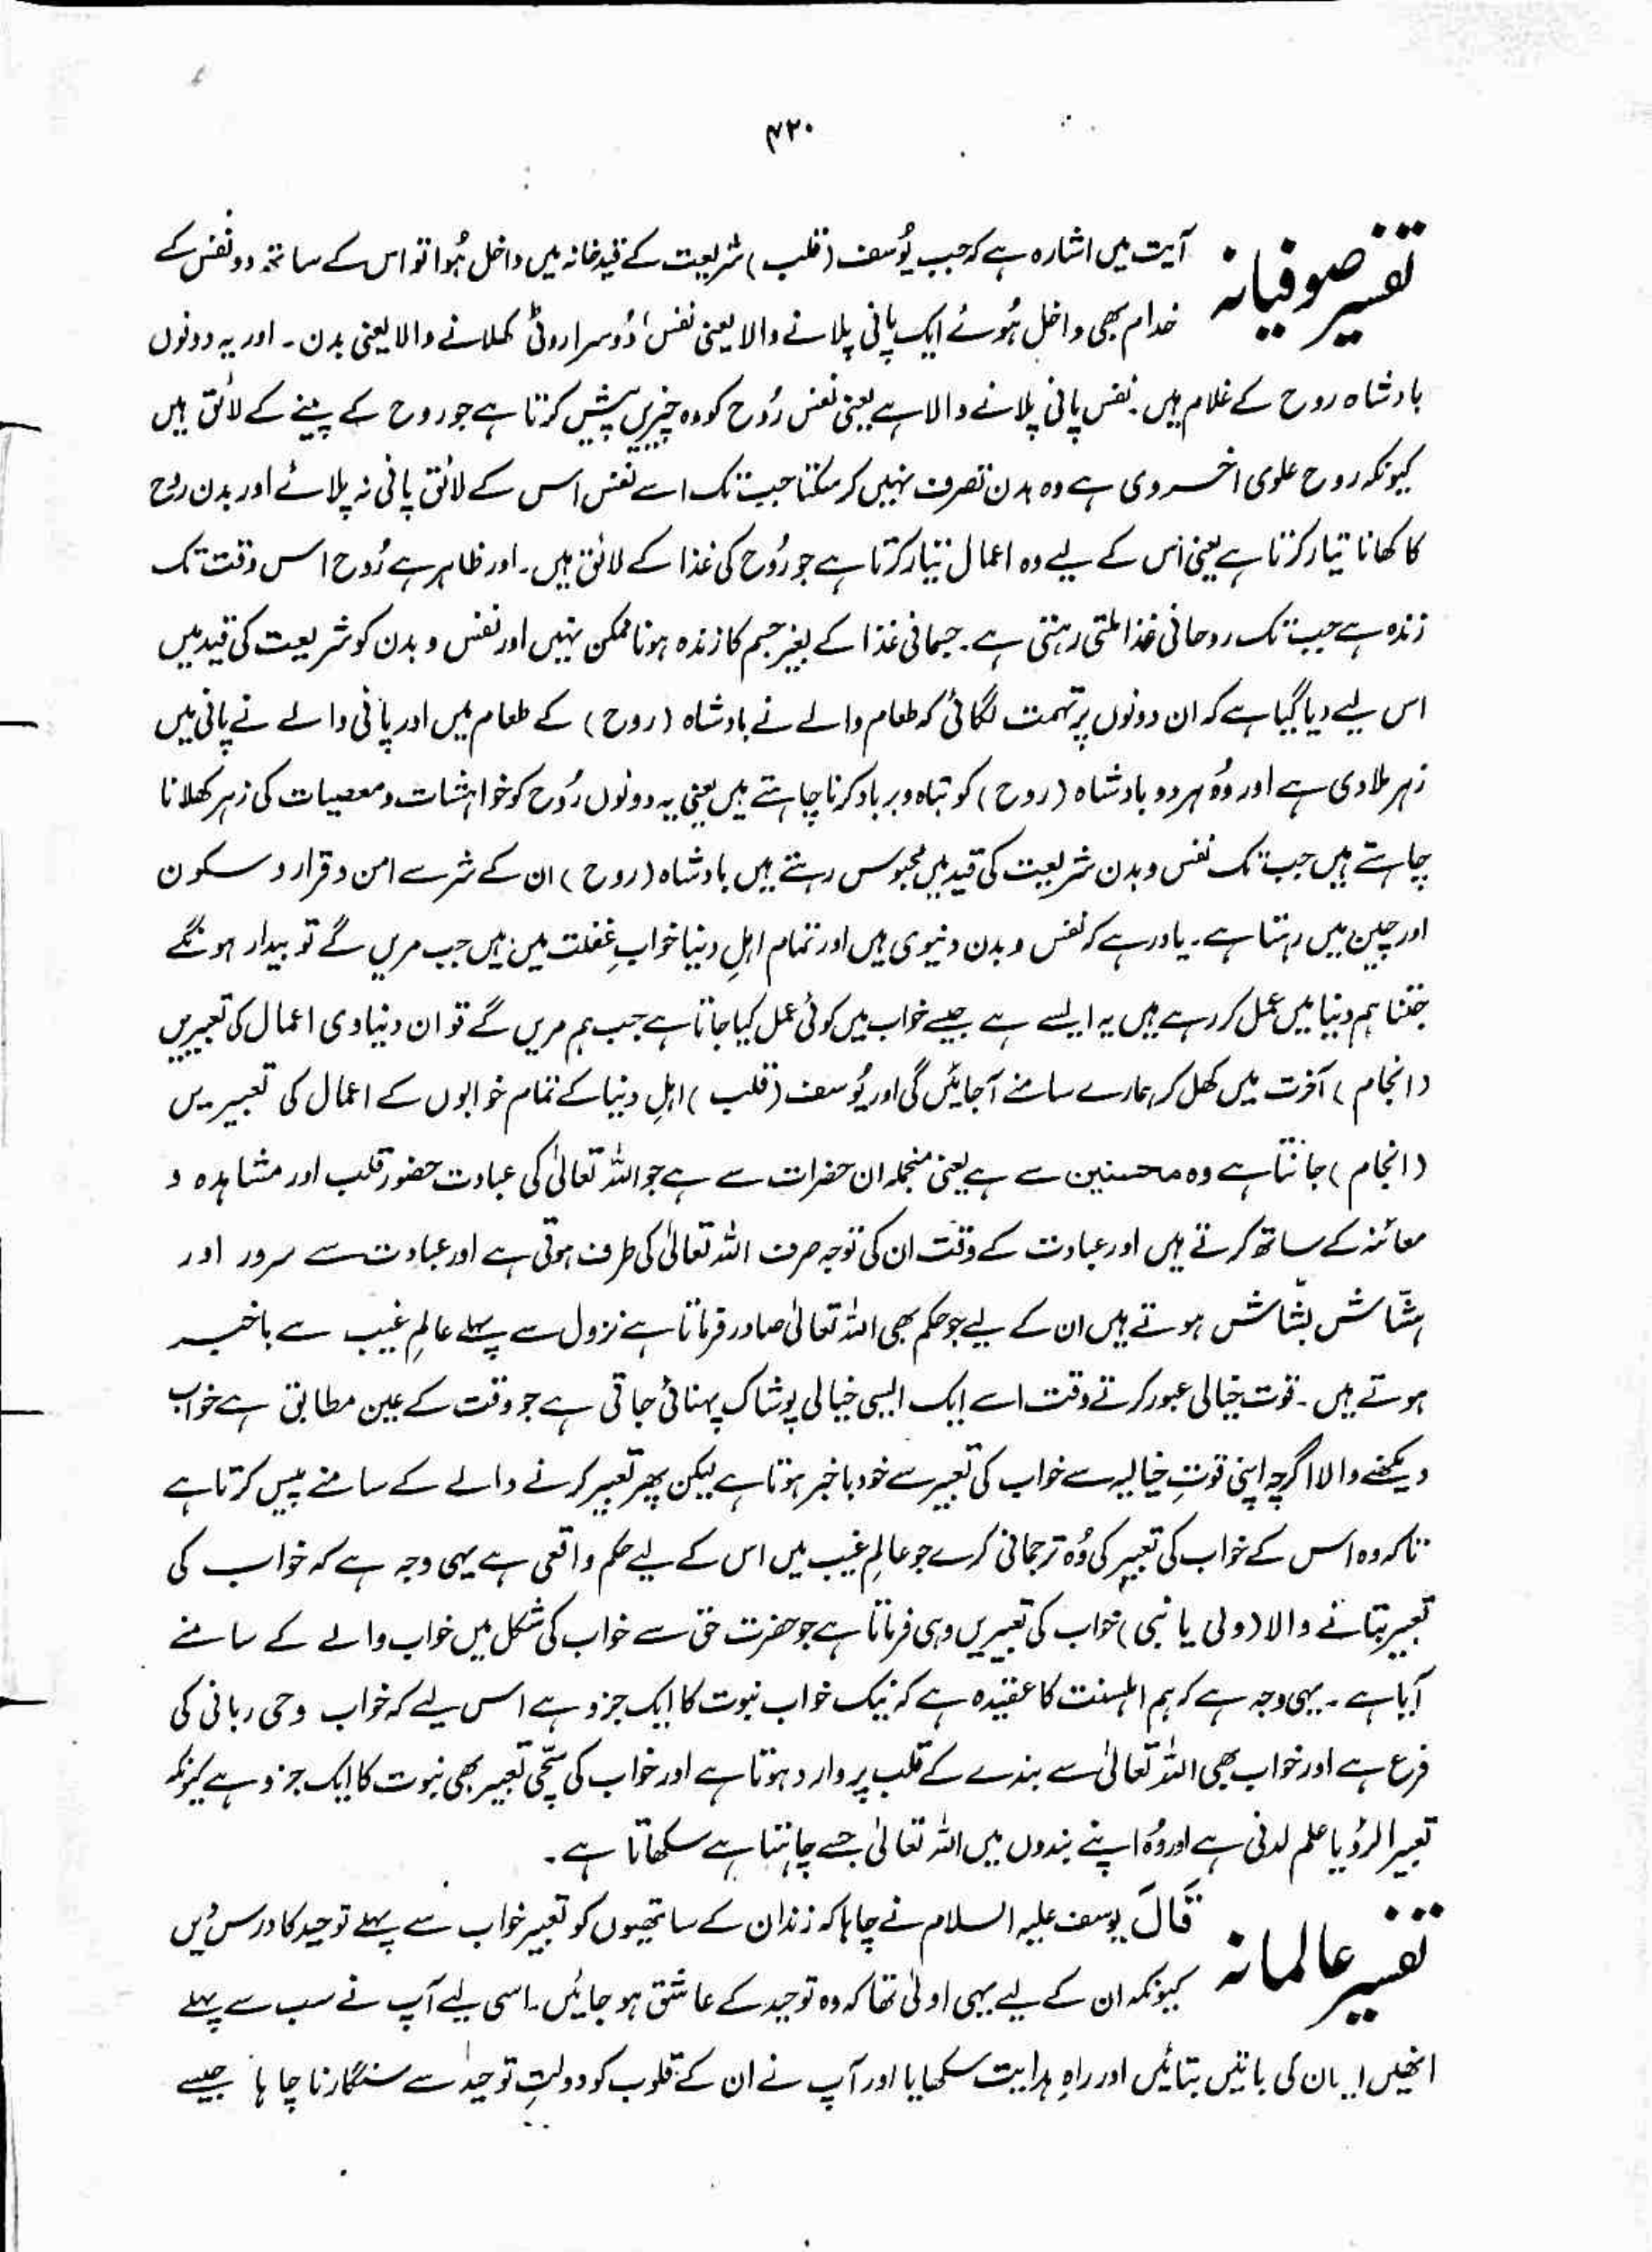 ۴۲۰
تفسیر صوفیانہ آیت میں اشارہ ہے کہ جب یُوسف (قلب) شریعت کے قید خانہ میں داخل ہُوا تو اس کے ساتھ دو نفس کے
خدام بھی داخل ہُوئے ایک پانی پلانے والا یعنی نفس دُوسرا روٹی کھلانے والا یعنی بدن۔ اور یہ دونوں
بادشاہ روح کے غلام ہیں۔ نفس پانی پلانے والا ہے یعنی نفس رُوح کو وہ چیزیں پیش کرتا ہے جو روح کے پینے کے لائق ہیں
کیونکہ روح علوی اخروی ہے وہ بدن تصرف نہیں کر سکتا جب تک اسے نفس اس کے لائق پانی نہ پلائے اور بدن روح
کا کھانا تیار کرتا ہے یعنی اس کے لیے وہ اعمال تیار کرتا ہے جو رُوح کی غذا کے لائق ہیں۔ اور ظاہر ہے رُوح اس وقت تک
زندہ ہے جب تک روحانی غذا ملتی رہتی ہے۔ جسمانی غذا کے بغیر جسم کا زندہ ہونا ممکن نہیں اور نفس و بدن کو شریعت کی قید میں
اس لیے دیا گیا ہے کہ ان دونوں پر تہمت لگائی کہ طعام والے نے بادشاہ (روح) کے طعام میں اور پانی والے نے پانی میں
زہر ملا دی ہے اور وُہ ہر دو بادشاہ (روح) کو تباہ و برباد کرنا چاہتے ہیں یعنی یہ دونوں رُوح کو خواہشات و معصیات کی زہر کھلانا
چاہتے ہیں جب تک نفس و بدن شریعت کی قید میں محبوس رہتے ہیں بادشاہ (روح) ان کے شر سے امن و قرار و سکون
اور چین میں رہتا ہے۔ یاد رہے کہ نفس و بدن دنیوی ہیں اور تمام اہلِ دنیا خوابِ غفلت میں ہیں جب مریں گے تو بیدار ہونگے
جتنا ہم دنیا میں عمل کر رہے ہیں یہ ایسے ہے جیسے خواب میں کوئی عمل کیا جاتا ہے جب ہم مریں گے تو ان دنیاوی اعمال کی تعبیریں
(انجام) آخرت میں کھل کر ہمارے سامنے آجائیں گی اور یُوسف (قلب) اہلِ دنیا کے تمام خوابوں کے اعمال کی تعبیریں
(انجام) جانتا ہے وہ محسنین سے ہے یعنی منجملہ ان حضرات سے ہے جو اللہ تعالیٰ کی عبادت حضورِ قلب اور مشاہدہ و
معائنہ کے ساتھ کرتے ہیں اور عبادت کے وقت ان کی توجہ صرف اللہ تعالیٰ کی طرف ہوتی ہے اور عبادت سے سرور اور
ہشّاش بشّاش ہوتے ہیں ان کے لیے جو حکم بھی اللہ تعالیٰ صادر فرماتا ہے نزول سے پہلے عالمِ غیب سے باخبر
ہوتے ہیں۔ قوت خیالی عبور کرتے وقت اسے ایک ایسی خیالی پوشاک پہنائی جاتی ہے جو وقت کے عین مطابق ہے خواب
دیکھنے والا اگرچہ اپنی قوتِ خیالیہ سے خواب کی تعبیر سے خود باخبر ہوتا ہے لیکن پھر تعبیر کرنے والے کے سامنے پیس کرتا ہے
تاکہ وہ اس کے خواب کی تعبیر کی وُہ ترجمانی کرے جو عالمِ غیب میں اس کے لیے حکم واقعی ہے یہی وجہ ہے کہ خواب کی
تعبیر بتانے والا (ولی یا نبی) خواب کی تعبیریں وہی فرماتا ہے جو حضرت حق سے خواب کی شکل میں خواب والے کے سامنے
آیا ہے۔ یہی وجہ ہے کہ ہم اہلسنت کا عقیدہ ہے کہ نیک خواب نبوت کا ایک جزو ہے اس لیے کہ خواب وحی ربانی کی
فرع ہے اور خواب بھی اللہ تعالیٰ سے بندے کے قلب پر وارد ہوتا ہے اور خواب کی سچّی تعبیر بھی نبوت کا ایک جزو ہے کیونکہ
تعبیر الرؤیا علم لدنی ہے اور وُہ اپنے بندوں میں اللہ تعالیٰ جسے چاہتا ہے سکھاتا ہے۔
تفسیر عالمانہ قَالَ یوسف علیہ السلام نے چاہا کہ زندان کے ساتھیوں کو تعبیر خواب سے پہلے توحید کا درس دیں
کیونکہ ان کے لیے یہی اولیٰ تھا کہ وہ توحید کے عاشق ہو جائیں۔ اسی لیے آپ نے سب سے پہلے
انھیں ایمان کی باتیں بتائیں اور راہِ ہدایت سکھایا اور آپ نے ان کے قلوب کو دولتِ توحید سے سنگارنا چاہا جیسے